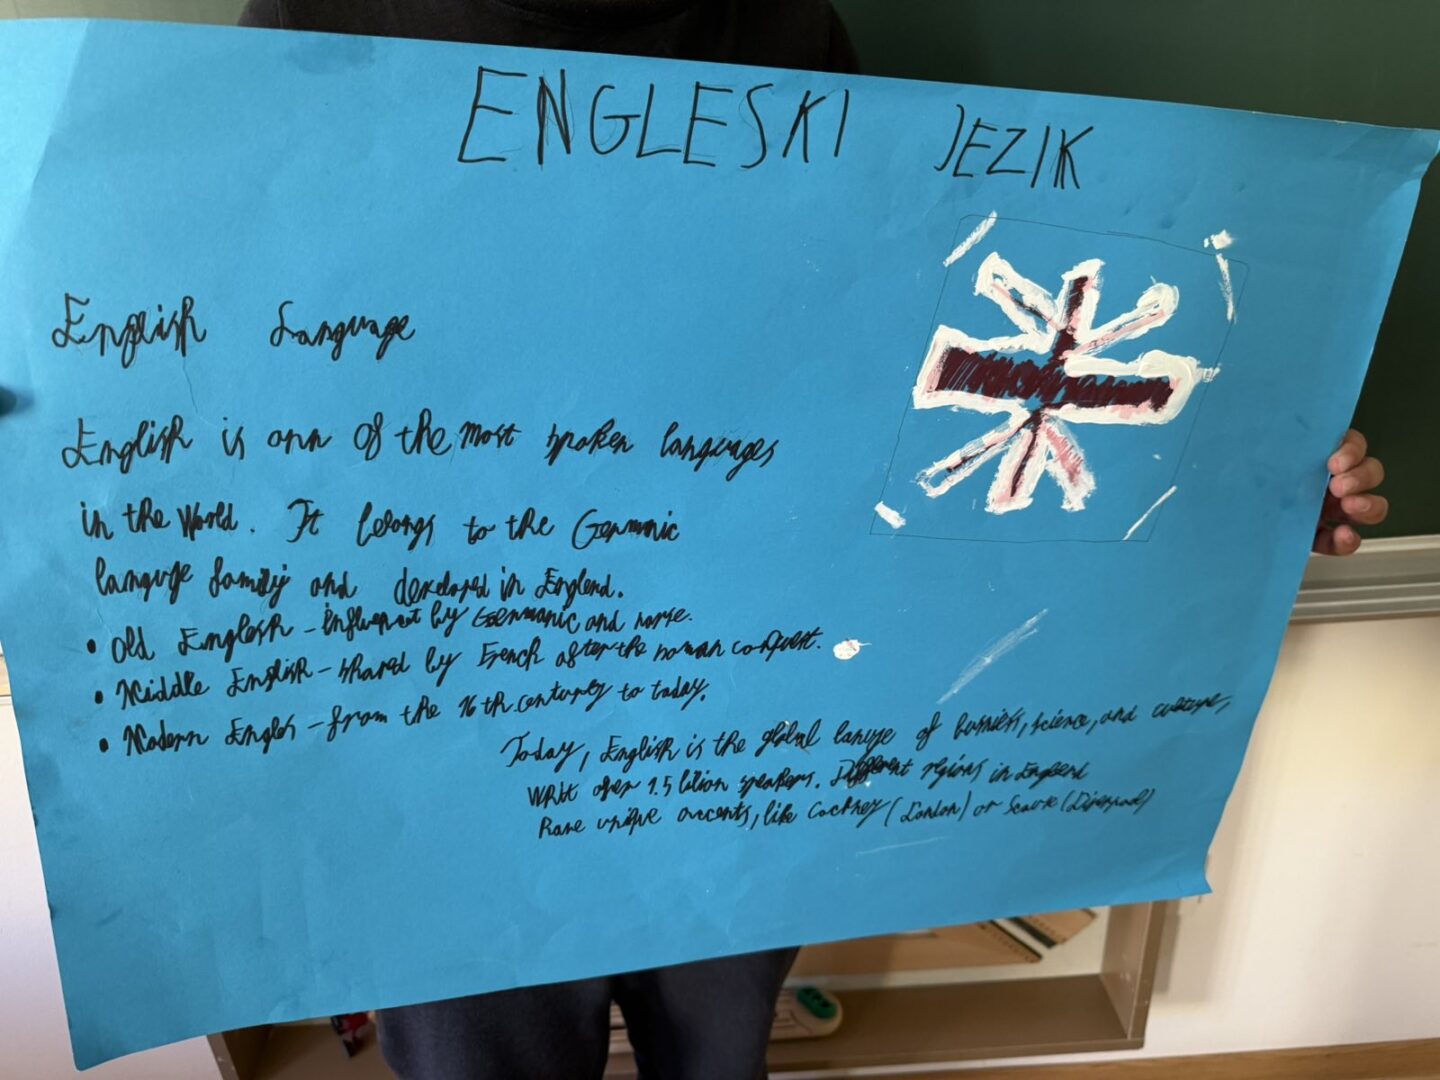 ENGLESKI JEZIK
English Language
English is onn of the most spoken languages
in the World. It belongs to the Genmanic
languge family and developed in Englend.
• Old Englesh - influenout by Genmanic and norse.
• Middle English - shared by French after the noman conquest.
• Modern Engles - from the 16th century to today.
Today, English is the global languge of business, science, and culture,
with ofer 1.5 bilion speakers. Different regions in England
have unique accents, like Cockney (London) or Scouse (Liverpool)